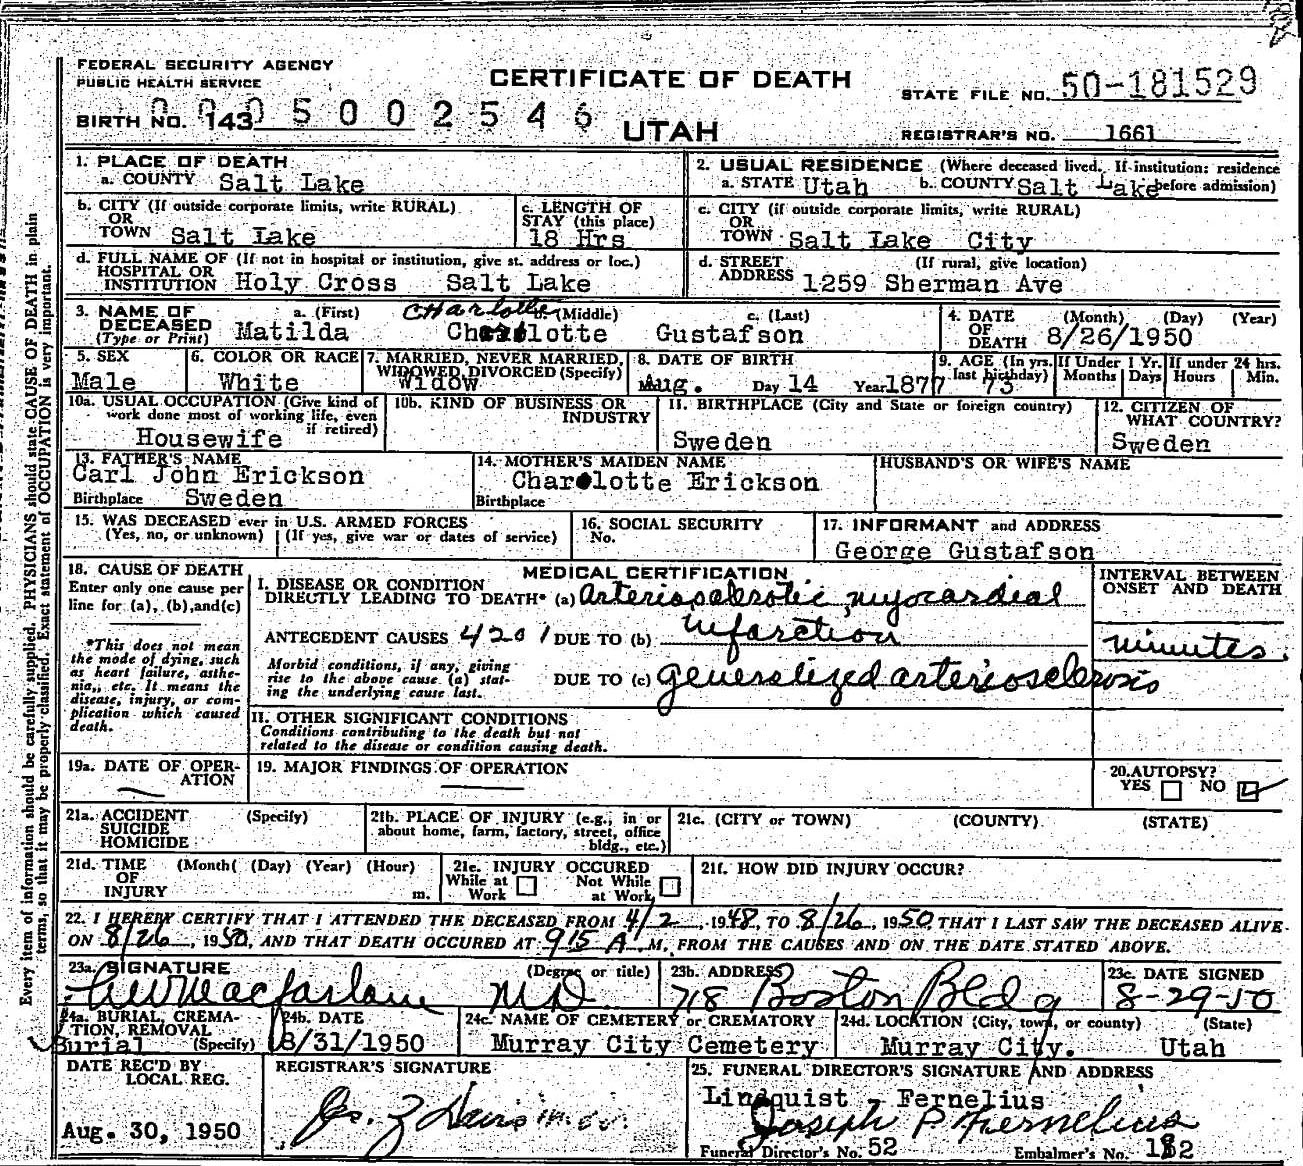 FEDERAL SECURITY AGENCY
PUBLIC HEALTH SERVICE
CERTIFICATE OF DEATH
STATE FILE NO. 50-181529
BIRTH NO. 143
0005002546
UTAH
REGISTRAR'S NO. 1661
1. PLACE OF DEATH
a. COUNTY Salt Lake
2. USUAL RESIDENCE (Where deceased lived. If institution: residence before admission)
a. STATE Utah b. COUNTY Salt Lake
b. CITY (If outside corporate limits, write RURAL)
OR
TOWN Salt Lake
c. LENGTH OF
STAY (this place)
18 Hrs
c. CITY (if outside corporate limits, write RURAL)
OR
TOWN Salt Lake City
d. FULL NAME OF (If not in hospital or institution, give st. address or loc.)
HOSPITAL OR
INSTITUTION Holy Cross Salt Lake
d. STREET (If rural, give location)
ADDRESS 1259 Sherman Ave
3. NAME OF DECEASED
(Type or Print)
a. (First) Charlotte (Middle) c. (Last)
Matilda Charlotte Gustafson
4. DATE OF DEATH (Month) (Day) (Year)
8/26/1950
5. SEX
Male
6. COLOR OR RACE
White
7. MARRIED, NEVER MARRIED,
WIDOWED, DIVORCED (Specify)
Widow
8. DATE OF BIRTH
Aug. Day 14 Year 1877
9. AGE (In yrs. last birthday)
73
If Under 1 Yr.
Months Days
If under 24 hrs.
Hours Min.
10a. USUAL OCCUPATION (Give kind of
work done most of working life, even
if retired)
Housewife
10b. KIND OF BUSINESS OR
INDUSTRY
11. BIRTHPLACE (City and State or foreign country)
Sweden
12. CITIZEN OF
WHAT COUNTRY?
Sweden
13. FATHER'S NAME
Carl John Erickson
Birthplace Sweden
14. MOTHER'S MAIDEN NAME
Charlotte Erickson
Birthplace
HUSBAND'S OR WIFE'S NAME
15. WAS DECEASED ever in U.S. ARMED FORCES
(Yes, no, or unknown) (If yes, give war or dates of service)
16. SOCIAL SECURITY
No.
17. INFORMANT and ADDRESS
George Gustafson
18. CAUSE OF DEATH
Enter only one cause per
line for (a), (b), and (c)
*This does not mean
the mode of dying, such
as heart failure, asthe-
nia, etc. It means the
disease, injury, or com-
plication which caused
death.
MEDICAL CERTIFICATION
I. DISEASE OR CONDITION
DIRECTLY LEADING TO DEATH* (a) Arteriosclerotic myocardial
ANTECEDENT CAUSES 4201 DUE TO (b) infarction
Morbid conditions, if any, giving
rise to the above cause (a) stat-
ing the underlying cause last.
DUE TO (c) generalized arteriosclerosis
INTERVAL BETWEEN
ONSET AND DEATH
minutes.
II. OTHER SIGNIFICANT CONDITIONS
Conditions contributing to the death but not
related to the disease or condition causing death.
19a. DATE OF OPER-
ATION
19. MAJOR FINDINGS OF OPERATION
20. AUTOPSY?
YES NO
21a. ACCIDENT (Specify)
SUICIDE
HOMICIDE
21b. PLACE OF INJURY (e.g., in or
about home, farm, factory, street, office
bldg., etc.)
21c. (CITY or TOWN) (COUNTY) (STATE)
21d. TIME (Month( (Day) (Year) (Hour)
OF
INJURY m.
21e. INJURY OCCURED
While at Work Not While at Work
21f. HOW DID INJURY OCCUR?
22. I HEREBY CERTIFY THAT I ATTENDED THE DECEASED FROM 4/2, 1948, TO 8/26, 1950, THAT I LAST SAW THE DECEASED ALIVE
ON 8/26, 1950, AND THAT DEATH OCCURED AT 915 A M. FROM THE CAUSES AND ON THE DATE STATED ABOVE.
23a. SIGNATURE (Degree or title)
Macfarlane MD
23b. ADDRESS
718 Boston Bldg
23c. DATE SIGNED
8-29-50
24a. BURIAL, CREMA-
TION, REMOVAL
Burial (Specify)
24b. DATE
8/31/1950
24c. NAME OF CEMETERY or CREMATORY
Murray City Cemetery
24d. LOCATION (City, town, or county) (State)
Murray City. Utah
DATE REC'D BY
LOCAL REG.
Aug. 30, 1950
REGISTRAR'S SIGNATURE
25. FUNERAL DIRECTOR'S SIGNATURE AND ADDRESS
Lindquist Fernelius
Joseph P Fernelius
Funeral Director's No. 52 Embalmer's No. 182
Every item of information should be carefully supplied. PHYSICIANS should state CAUSE OF DEATH in plain
terms, so that it may be properly classified. Exact statement of OCCUPATION is very important.